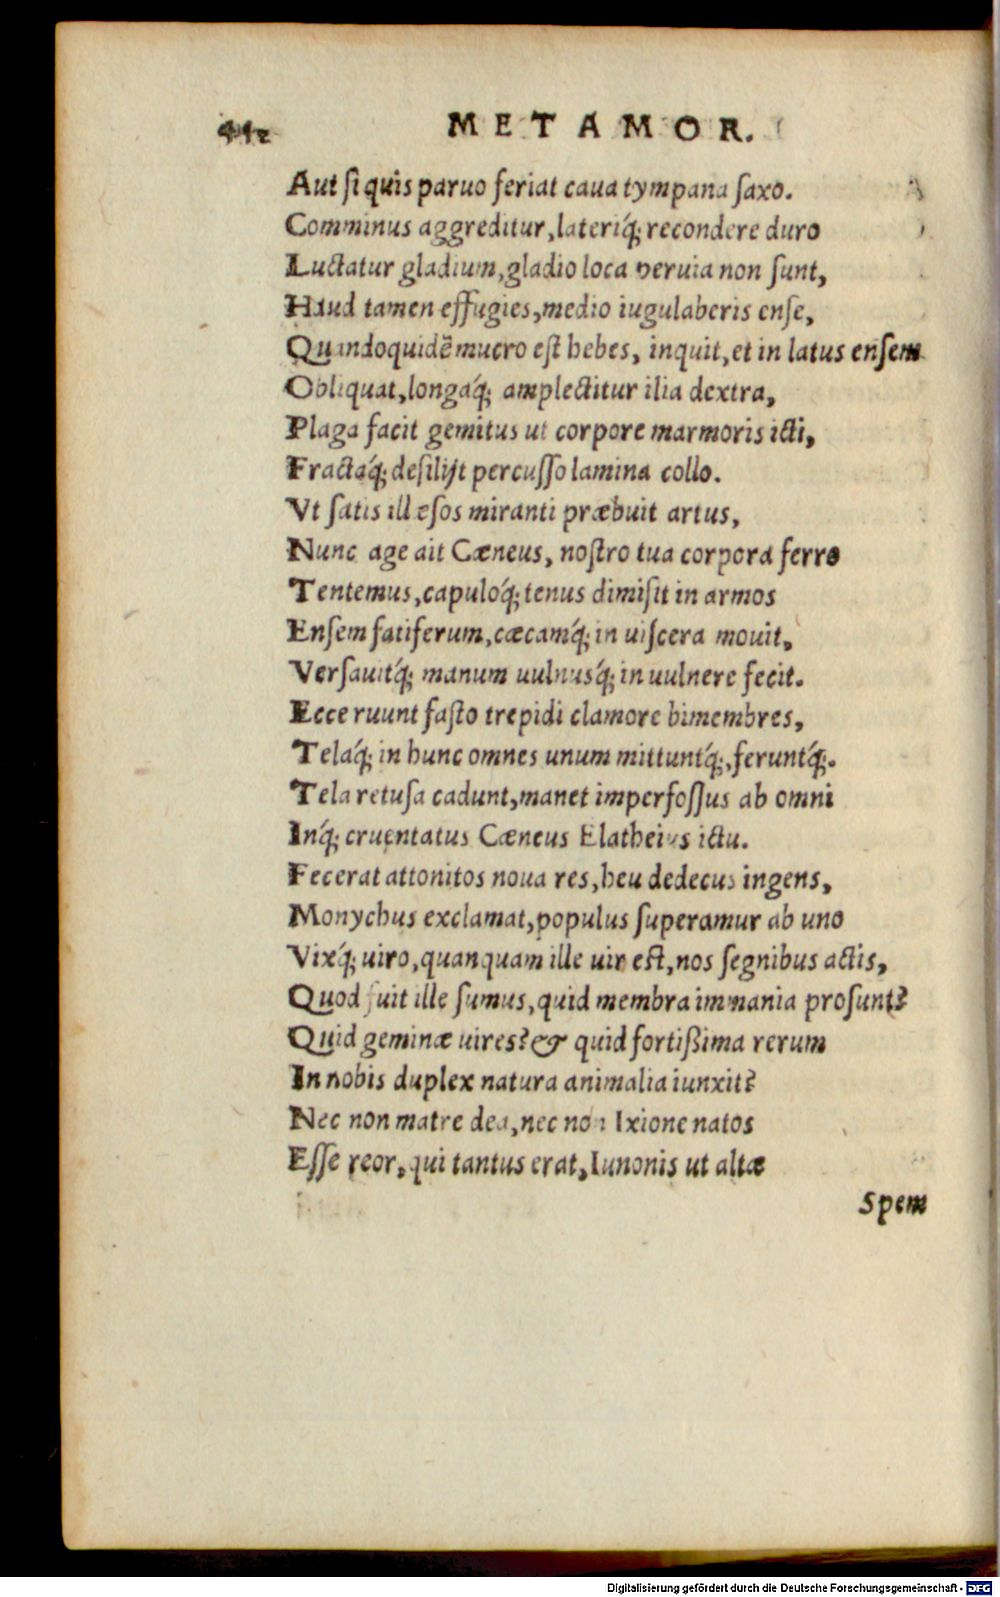 442 METAMOR.
Aut ſi quis paruo feriat caua tympana ſaxo.
Comminus aggreditur, lateriq́; recondere duro
Luctatur gladium, gladio loca peruia non ſunt,
Haud tamen effugies, medio iugulaberis enſe,
Quandoquidē mucro eſt hebes, inquit, et in latus enſem
Obliquat, longaq́; amplectitur ilia dextra,
Plaga facit gemitus ut corpore marmoris icti,
Fractaq́; deſilijt percuſſo lamina collo.
Vt ſatis illæſos miranti præbuit artus,
Nunc age ait Cæneus, noſtro tua corpora ferro
Tentemus, capuloq́; tenus dimiſit in armos
Enſem fatiferum, cæcamq́; in uiſcera mouit,
Verſauitq́; manum uulnusq́; in uulnere fecit.
Ecce ruunt faſto trepidi clamore bimembres,
Telaq́; in hunc omnes unum mittuntq́;, feruntq́;.
Tela retuſa cadunt, manet imperfoſſus ab omni
Inq́; cruentatus Cæneus Elatheius ictu.
Fecerat attonitos noua res, heu dedecus ingens,
Monychus exclamat, populus ſuperamur ab uno
Vixq́; uiro, quanquam ille uir eſt, nos ſegnibus actis,
Quod fuit ille ſumus, quid membra immania proſunt?
Quid geminæ uires? & quid fortißima rerum
In nobis duplex natura animalia iunxit?
Nec non matre dea, nec non Ixione natos
Eſſe reor, qui tantus erat, Iunonis ut altæ
Spem
Digitalisierung gefördert durch die Deutsche Forschungsgemeinschaft - DFG